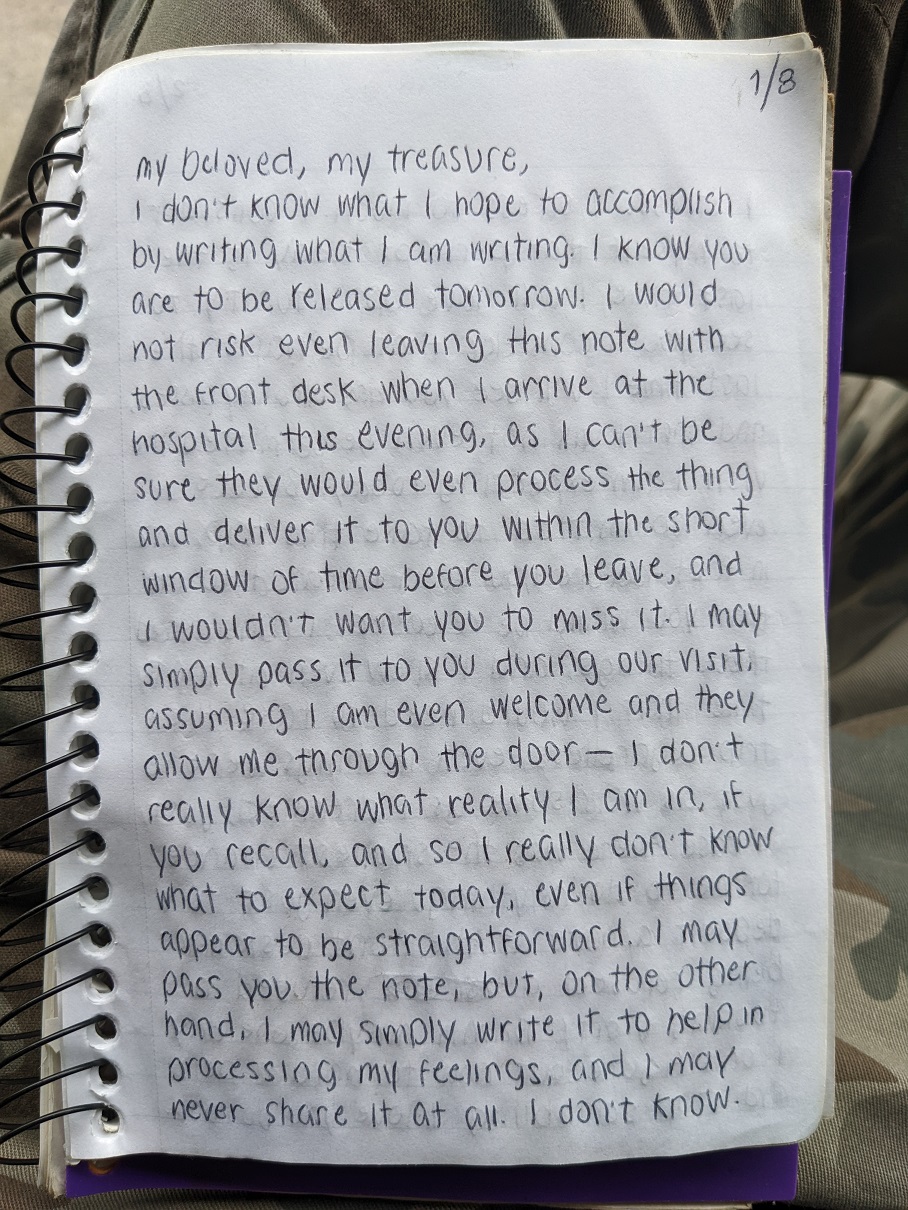 1/8
my beloved, my treasure,
I don't know what I hope to accomplish
by writing what I am writing. I know you
are to be released tomorrow. I would
not risk even leaving this note with
the front desk when I arrive at the
hospital this evening, as I can't be
sure they would even process the thing
and deliver it to you within the short
window of time before you leave, and
I wouldn't want you to miss it. I may
simply pass it to you during our visit,
assuming I am even welcome and they
allow me through the door— I don't
really know what reality I am in, if
you recall, and so I really don't know
what to expect today, even if things
appear to be straightforward. I may
pass you the note, but, on the other
hand, I may simply write it to help in
processing my feelings, and I may
never share it at all. I don't know.